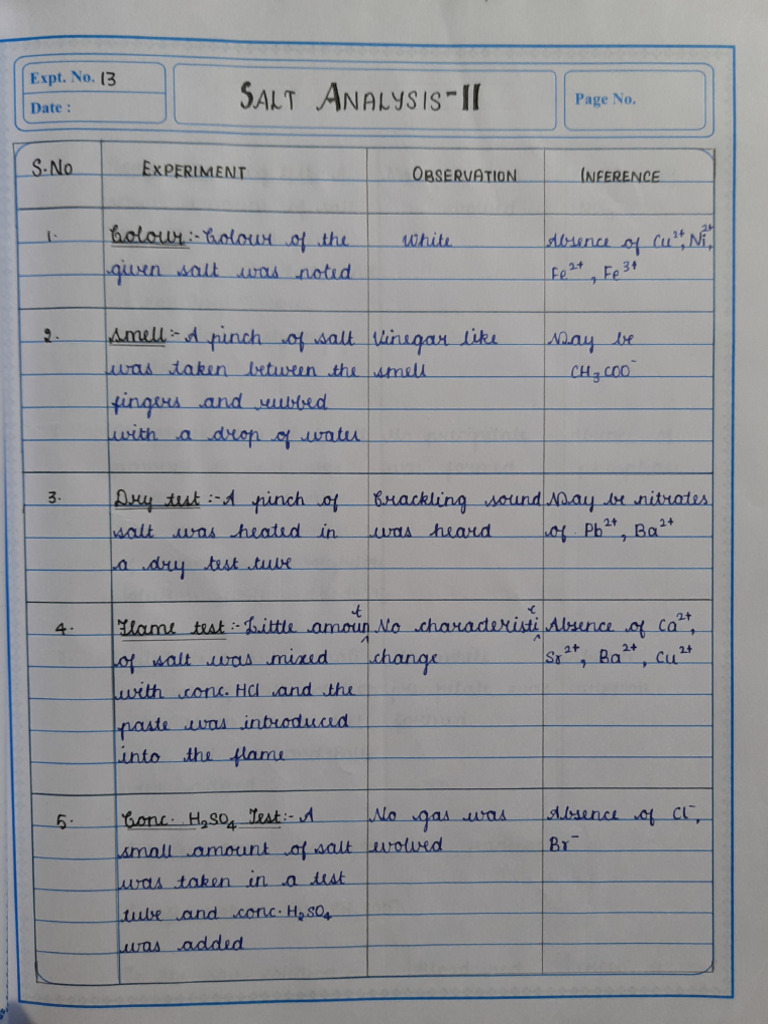 Expt. No. 13
Date :
SALT ANALYSIS-II
Page No.
S.No EXPERIMENT OBSERVATION INFERENCE
1. Colour:- Colour of the
given salt was noted
White
Absence of Cu²⁺, Ni²⁺,
Fe²⁺, Fe³⁺
2. Smell:- A pinch of salt
was taken between the
fingers and rubbed
with a drop of water
Vinegar like
smell
May be
CH₃COO⁻
3. Dry test:- A pinch of
salt was heated in
a dry test tube
Crackling sound
was heard
May be nitrates
of Pb²⁺, Ba²⁺
4. Flame test:- Little amount
of salt was mixed
with conc. HCl and the
paste was introduced
into the flame
No characteristic
change
Absence of Ca²⁺,
Sr²⁺, Ba²⁺, Cu²⁺
5. Conc. H₂SO₄ Test:- A
small amount of salt
was taken in a test
tube and conc. H₂SO₄
was added
No gas was
evolved
Absence of Cl⁻,
Br⁻